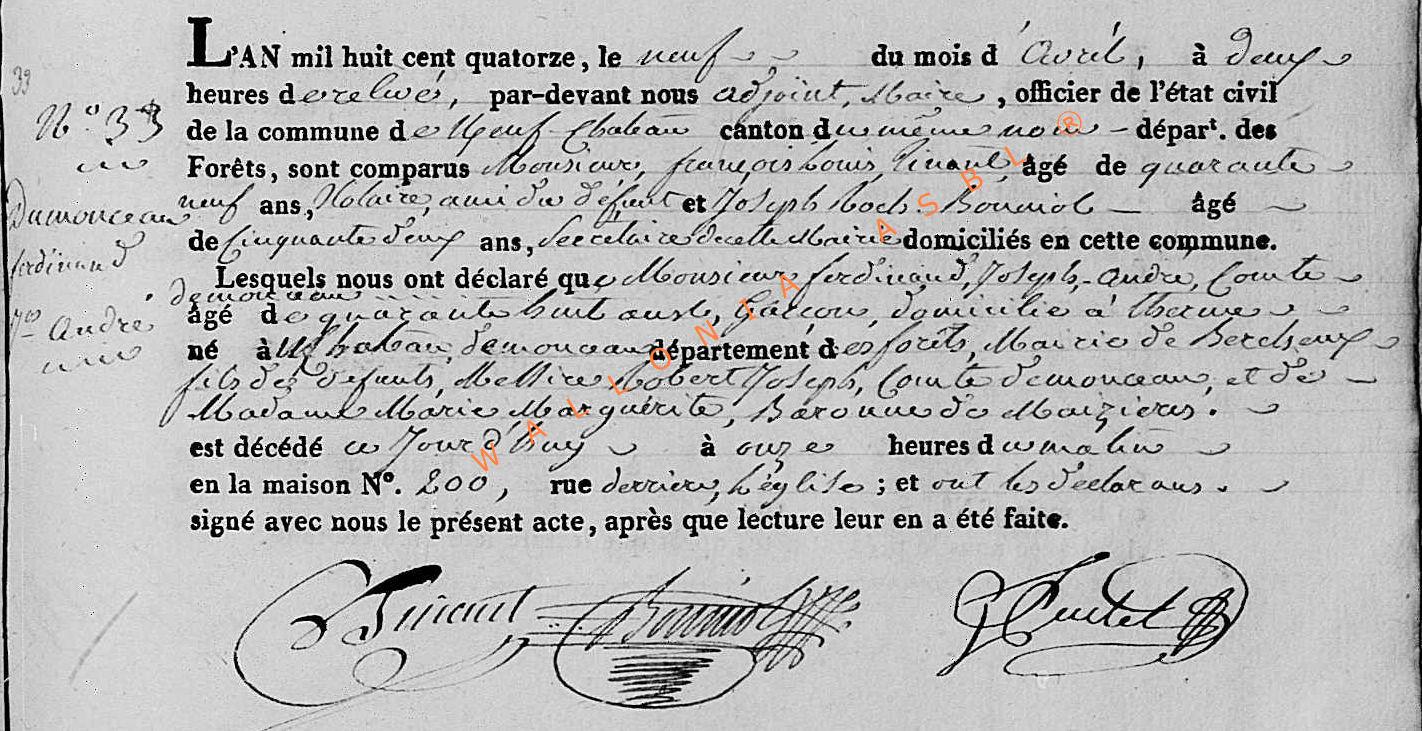 39
L'AN mil huit cent quatorze, le neuf du mois d'avril, à deux
heures de relevé, par-devant nous adjoint, Maire, officier de l'état civil
N.o 33
de la commune de Neuf-Chateau canton du même nom - départ. des
Forêts, sont comparus Monsieur, françois Louis, Tinant, âgé de quarante
Dumonceau
neuf ans, Notaire, ami du défunt et Joseph Roch. Bonniol — âgé
de Cinquante deux ans, Secretaire de cette Mairie domiciliés en cette commune.
ferdinand
Lesquels nous ont déclaré que Monsieur ferdinand, Joseph, andré, Comte
demonceau
âgé de quarante huit ans, Garçon, domicilié à therme
Jos andre
né à demonceau département des forêts, Mairie de Bercheux
fils des défunts, Messire Robert Joseph, Comte demonceau, et de
Madame Marie Marguérite, Baronne de Maizieres.
est décédé ce Jour d'huy à onze heures du matin
en la maison N.o 200, rue derriere, L'église ; et ont les déclarans.
signé avec nous le présent acte, après que lecture leur en a été faite.
Tinant Bonniol
WALLONIA ASBL ®